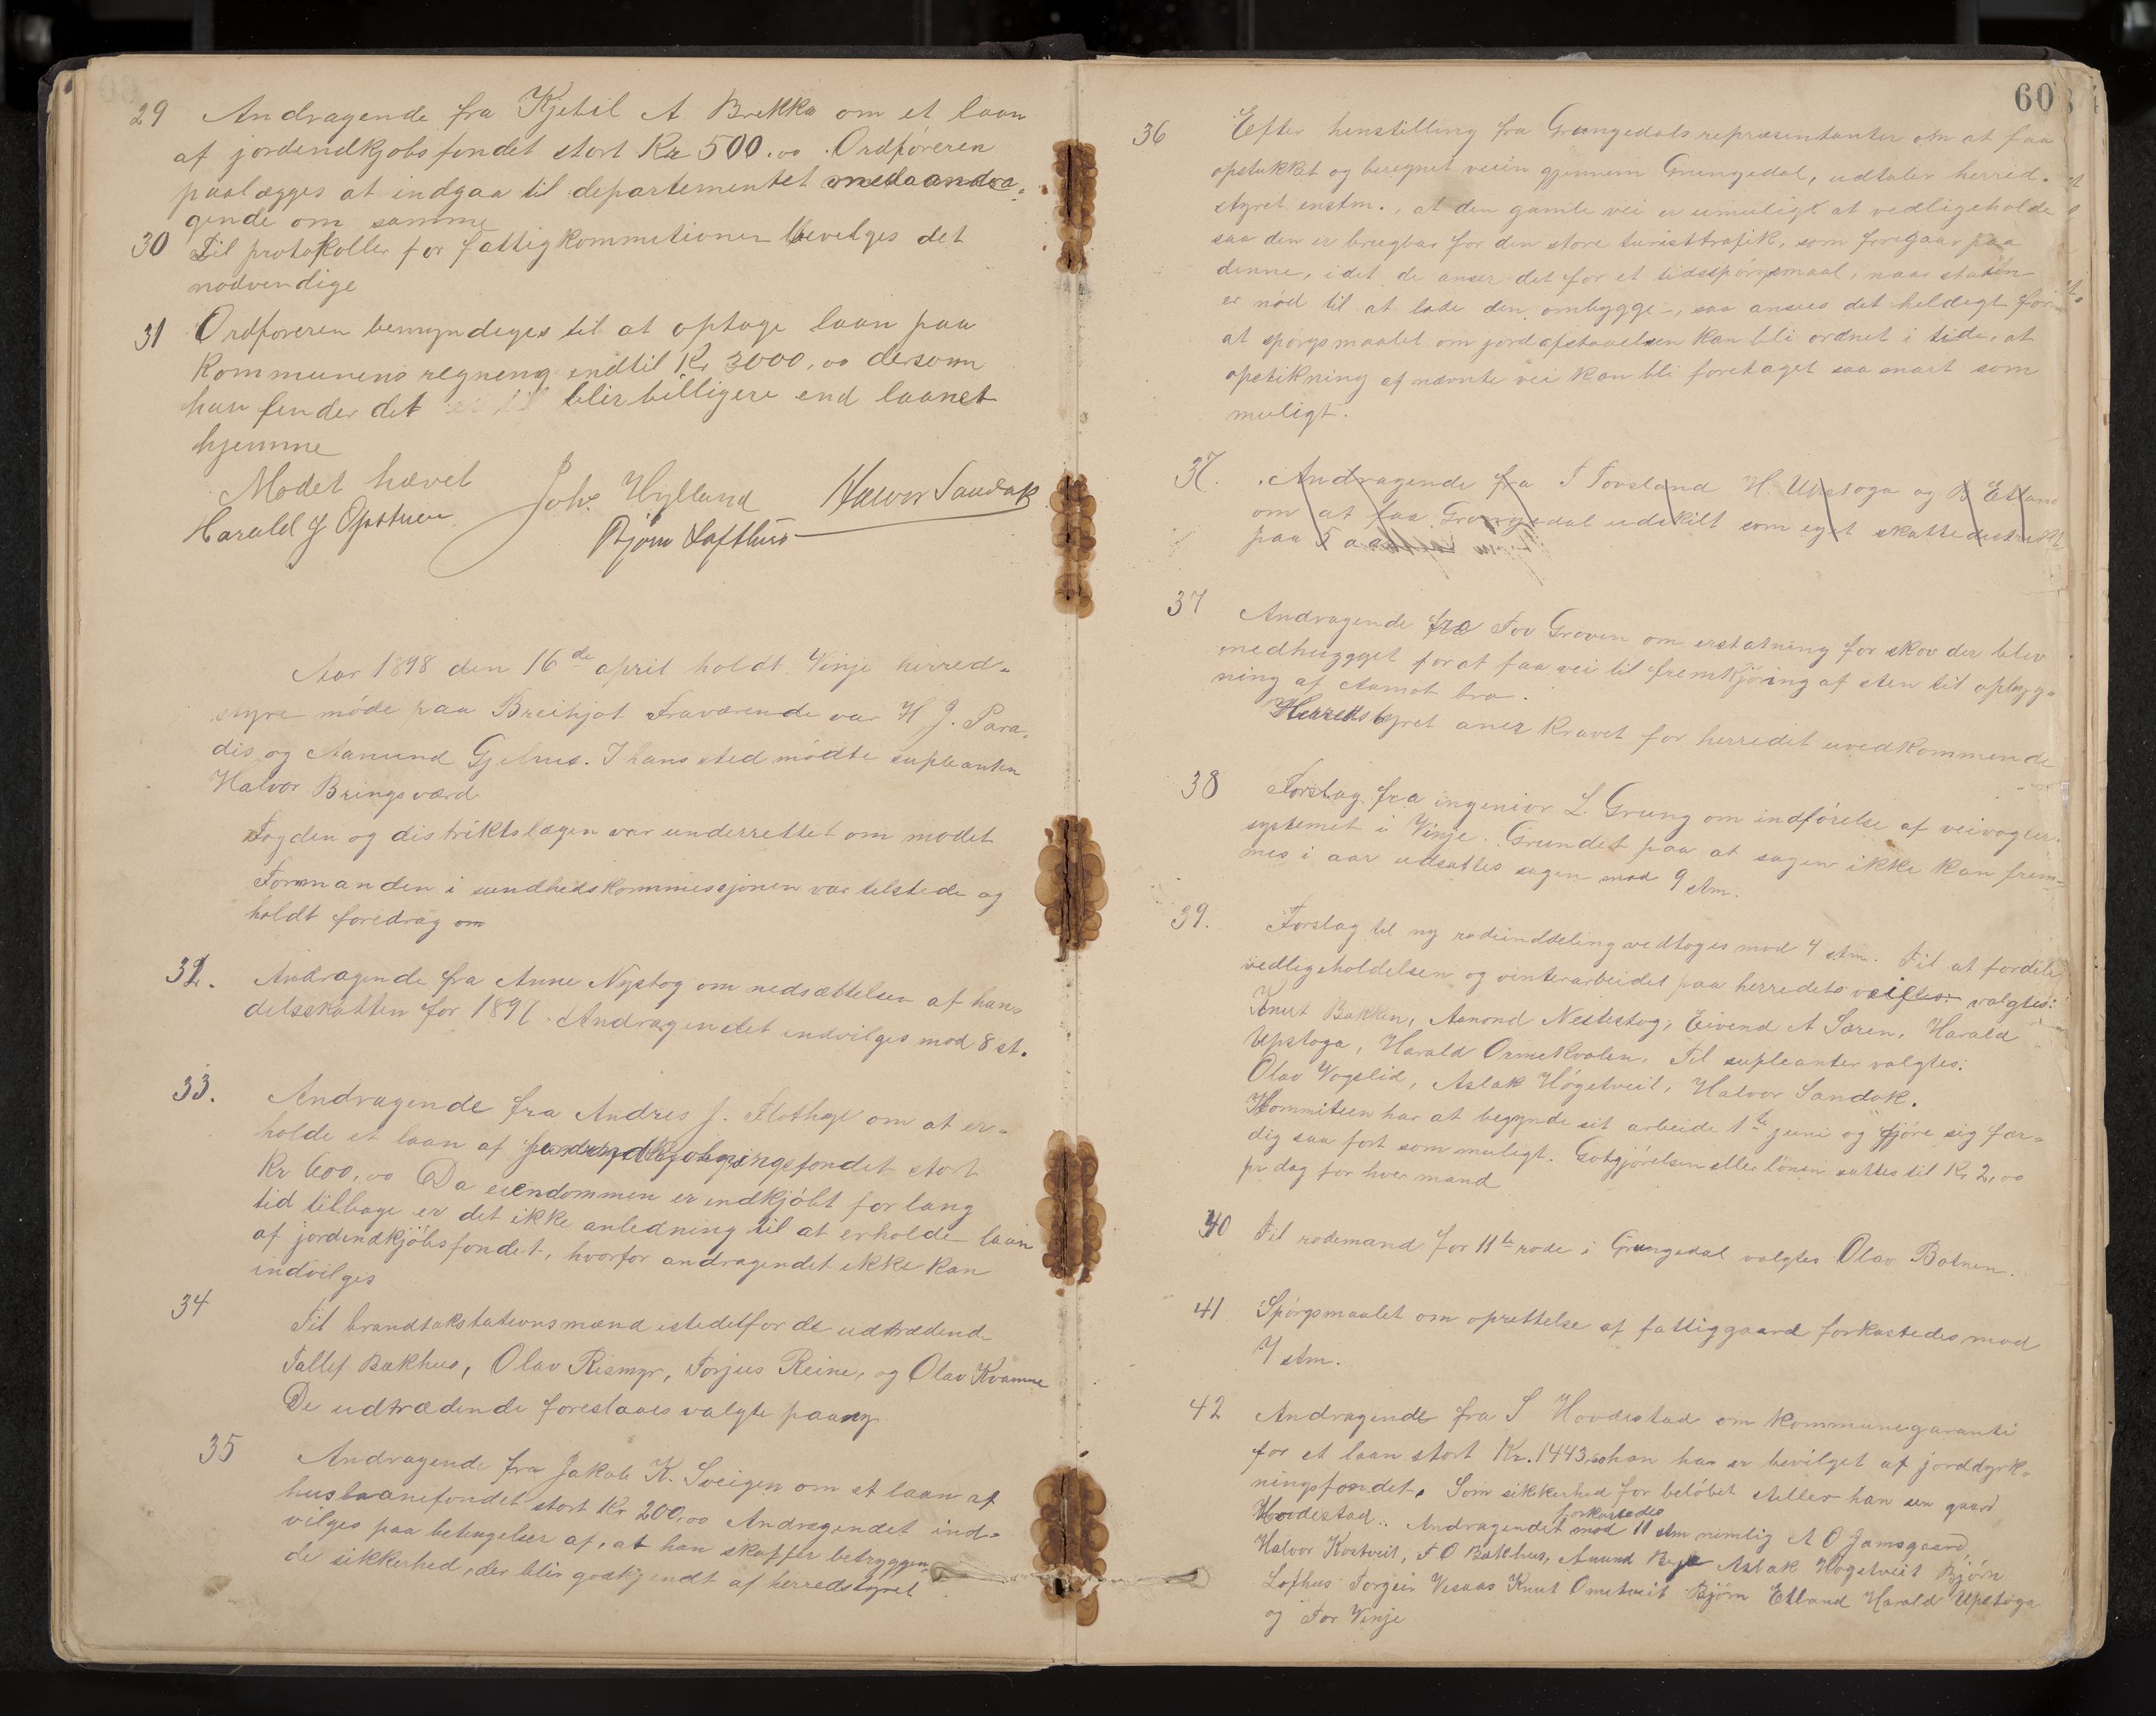 29 Andragende fra Kjetil A Brekka om et laan
af jordindkjøbsfondet stort Kr 500.00. Ordføreren
paalægges at indgaa til departementet med andra-
gende om samme
30 Til protokoller for fattigkommitioner bevilges det
nødvendige
31 Ordføreren bemyndiges til at optage laan paa
kommunens regning indtil Kr 3000,00 dersom
han finder det blir billigere end laanet
hjemme
Mødet hævet
Harald J Opstuen Joh. Hylland Halvor Sandok
Bjørn Lofthus
Aar 1898 den 16de april holdt Vinje herred-
styre møde paa Breihjot Fraværende var H J. Para-
dis og Aanund Gjelhus. I hans sted mødte supleanten
Halvor Bringsværd
Fogden og distriktslægen var underrettet om mødet
Formanden i sundhedskommissjonen var tilstede og
holdt foredrag om
32. Andragende fra Anne Nystog om nedsættelsen af han-
delsskatten for 1897. Andragendet indvilges mod 8 st.
33. Andragende fra Andres J. Flothyl om at er-
holde et laan af fondet stort
Kr 600,00 Da eiendommen er indkjøbt for lang
tid tilbage er det ikke anledning til at erholde laan
af jordindkjøbsfondet, hvorfor andragendet ikke kan
indvilges
34 Til brandtakstationsmænd istedetfor de udtrædende
Tallef Bækhus, Olav Rismyr, Torjus Reine, og Olav Kvamme
De udtrædende foreslaaes valgte paany
35 Andragende fra Jakob K. Sveigen om et laan af
huslaanefondet stort Kr 200,00 Andragendet ind-
vilges paa betingelser af, at han skaffer betryggen-
de sikkerhed, der blir godkjendt af herredstyret
60
36 Efter henstilling fra Grungedals repræsentanter om at faa
opstukket og beregnet veiin gjennem Grungedal, udtaler herred-
styret enstm., at den gamle vei er umuligt at vedligeholde
saa den er brugbar for den store turisttrafik, som foregaar paa
denne, idet de anser det for et tidsspørgsmaal, naar staten
er nød til at lade den ombygge, saa ansees det heldigt for
at spørgsmaalet om jordafstaaelsen kan bli ordnet i tide, at
opstikning af nævnte vei kan bli foretaget saa snart som
muligt.
37. Andragende fra T Tovsland H. Upstoga og B Etland
om at faa Grungedal udskilt som eget skattedistrikt
paa 5 aar
37 Andragende fra Tov Grøven om erstatning for skov der blev
nedhuggget for at faa vei til fremkjøring af sten til opbyg-
ning af Aamot bro.
Herredstyret aner kravet for herredet uvedkommende
38 Forslag fra ingeniør L. Grung om indførelse af veivogter-
systemet i Vinje. Grundet paa at sagen ikke kan frem-
mes i aar udsattes sagen mod 9 stm.
39. Forslag til ny rodeinddeling vedtoges mod 4 stm. Til at fordele
vedligeholdelsen og vinterarbeidet paa herredets veie valgtes:
Knut Bakken, Aanond Nestestog, Eivend A Særen, Harald
Upstoga, Harald Ormekvalen. Til supleanter valgtes:
Olav Vogslid, Aslak Høgetveit, Halvor Sandok.
Kommiteen har at begynde sit arbeide 1te juni og gjøre sig fær-
dig saa fort som muligt. Godgjørelsen eller lønnen sattes til Kr 2,00
pr dag for hver mand
40 Til rodemand for 11te rode i Grungedal valgtes Olav Botnen.
41 Spørgsmaalet om oprettelse af fattiggaard forkastedes mod
7 stm.
42 Andragende fra S Hovdestad om kommunegaranti
for et laan stort Kr. 1443,00 han har er bevilget af jorddyrk-
ningsfondet. Som sikkerhed for beløbet stiller han sin gaard
Hovdestad. Andragendet forkastedes mod 11 stm nemlig A O Jamsgaard
Halvor Kostveit, T O Bækhus, Amund Aslak Høgetveit Bjørn
Lofhus Torgeir Vesaas Knut Ometveit Bjørn Etland Harald Upstoga
og Tor Vinje